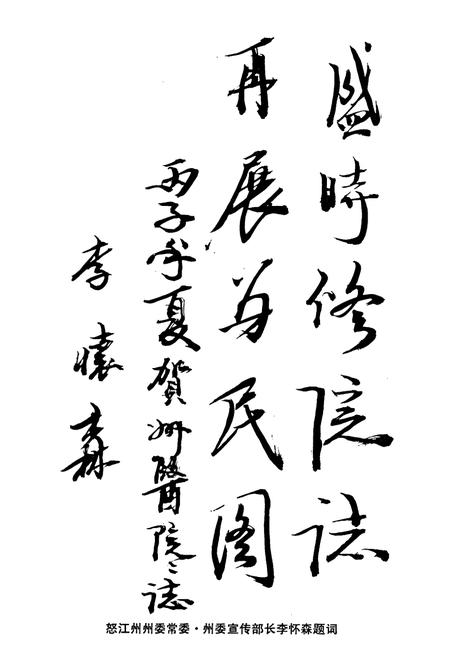 盛時修院誌
再展为民图
丙子年夏賀州醫院〻誌
李懷森
怒江州州委常委·州委宣传部长李怀森题词